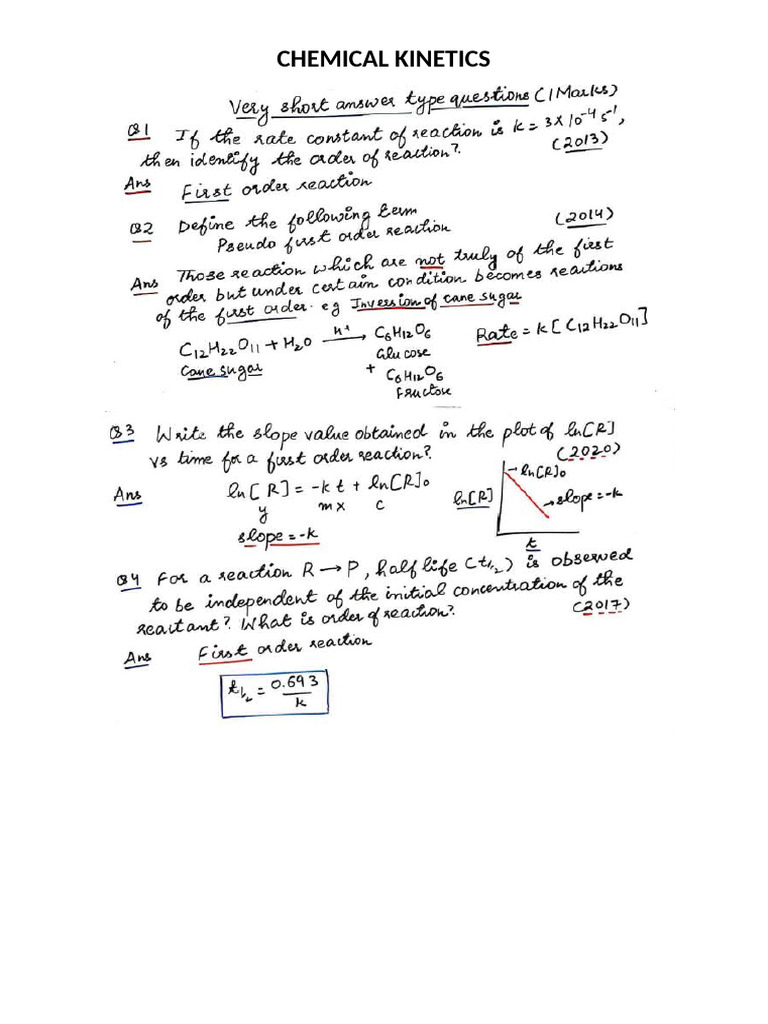 CHEMICAL KINETICS
Very short answer type questions (1 Marks)
Q1 If the rate constant of reaction is k = 3 x 10⁻⁴ s⁻¹,
then identify the order of reaction?. (2013)
Ans First order reaction
Q2 Define the following term (2014)
Pseudo first order reaction
Ans Those reaction which are not truly of the first
order but under certain condition becomes reactions
of the first order. eg Inversion of cane sugar
C₁₂H₂₂O₁₁ + H₂O —H⁺→ C₆H₁₂O₆ Rate = k [C₁₂H₂₂O₁₁]
Cane sugar Glucose
+ C₆H₁₂O₆
Fructose
Q3 Write the slope value obtained in the plot of ln[R]
vs time for a first order reaction?. (2020)
Ans ln[R] = -kt + ln[R]₀
y mx c
slope = -k
ln[R]₀
ln[R] → slope = -k
t
Q4 For a reaction R → P, half life (t½) is observed
to be independent of the initial concentration of the
reactant? What is order of reaction?. (2017)
Ans First order reaction
t½ = 0.693/k